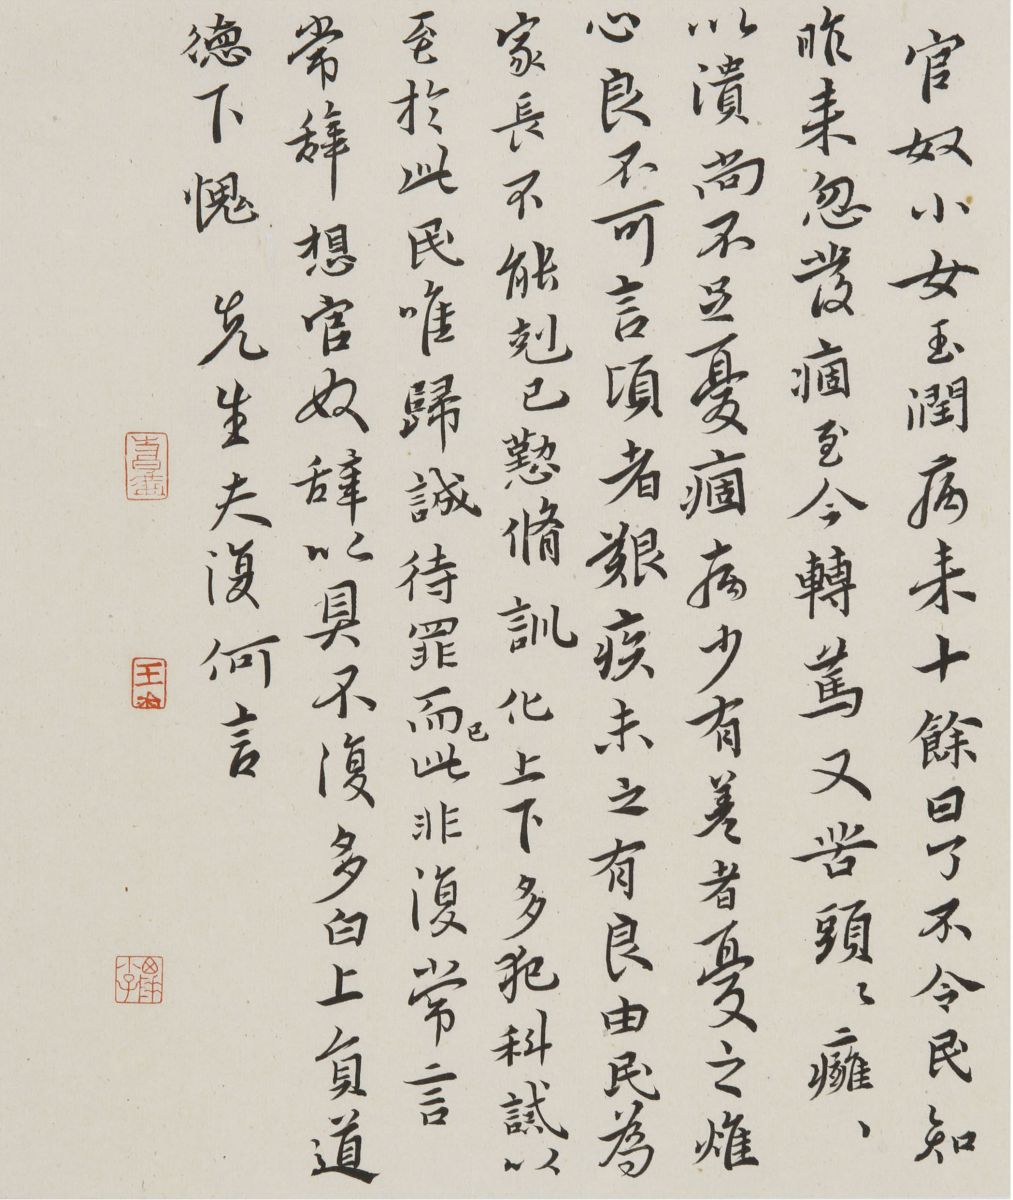 官奴小女玉潤病来十餘日了不令民知
昨来忽發痼至今轉篤又苦頭〻癰、
以潰尚不足憂痼病少有差者憂之燋
心良不可言頃者艱疾未之有良由民為
家長不能剋己懃脩訓化上下多犯科誡以
至於此民唯歸誠待罪而已此非復常言
常辭想官奴辭以具不復多白上負道
德下愧 先生夫復何言